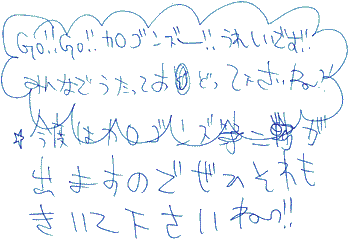 GO!!GO!!カロゴンズー!!うれしいです!!
みんなでうたってお どって下さいねっ!
☆今度はカロゴンズ 二 が
出ますのでぜひそれも
きいて下さいねっ!!